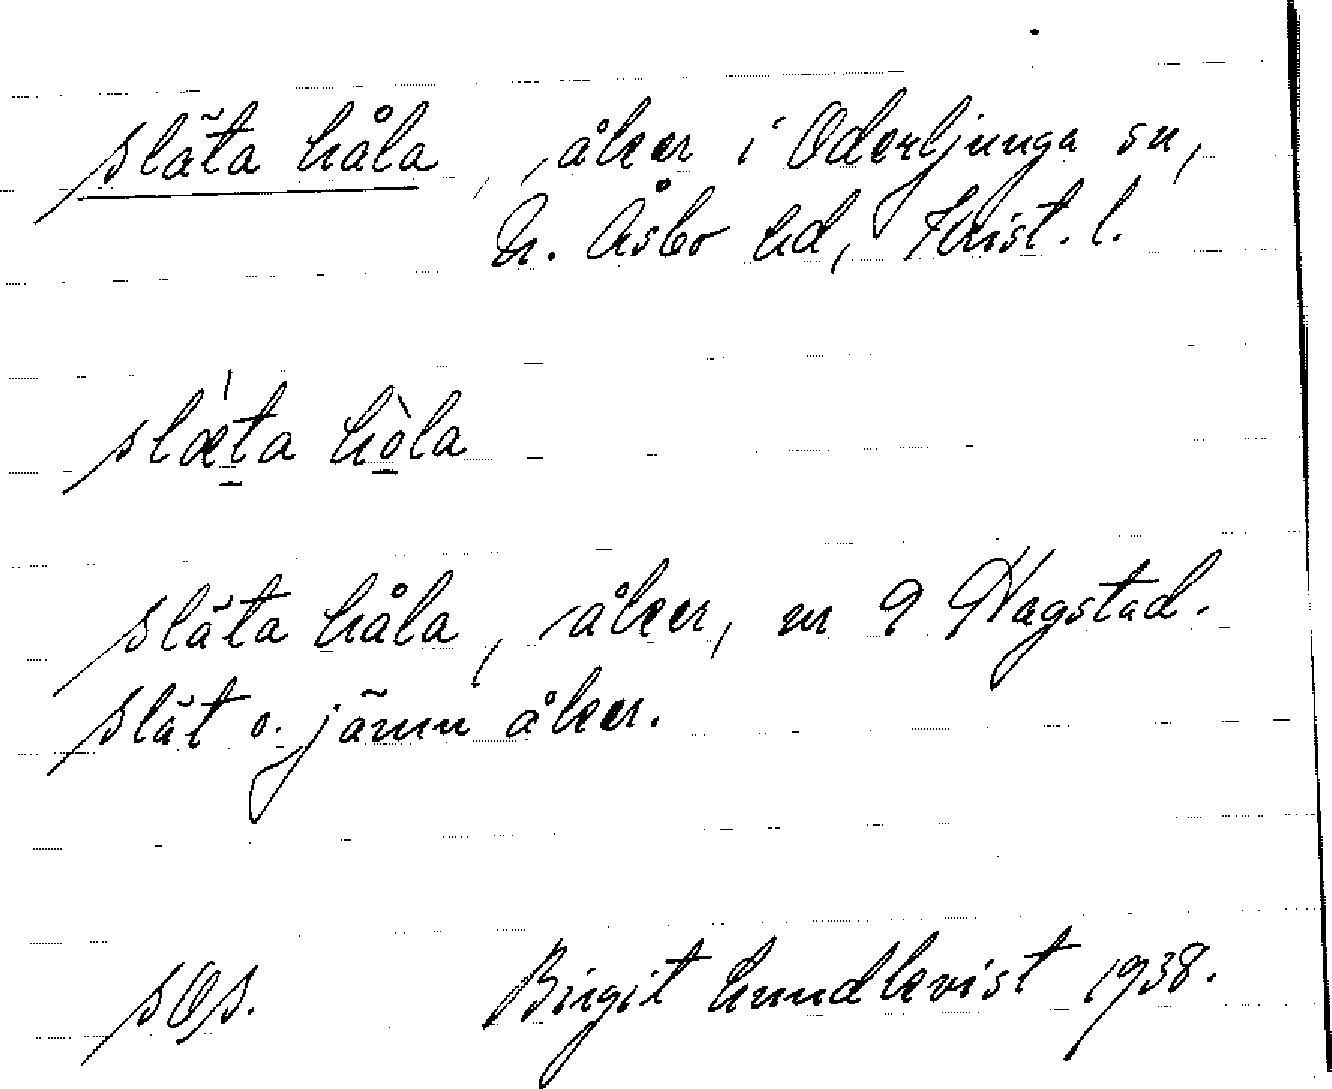 släta håla, åker i Oderljunga sn,
N. Åsbo hd, Krist. l.
slæta hola
släta håla, åker, nr 9 Hagstad.
Slät o. jämn åker.
SOS. Birgit Lundkvist 1938.